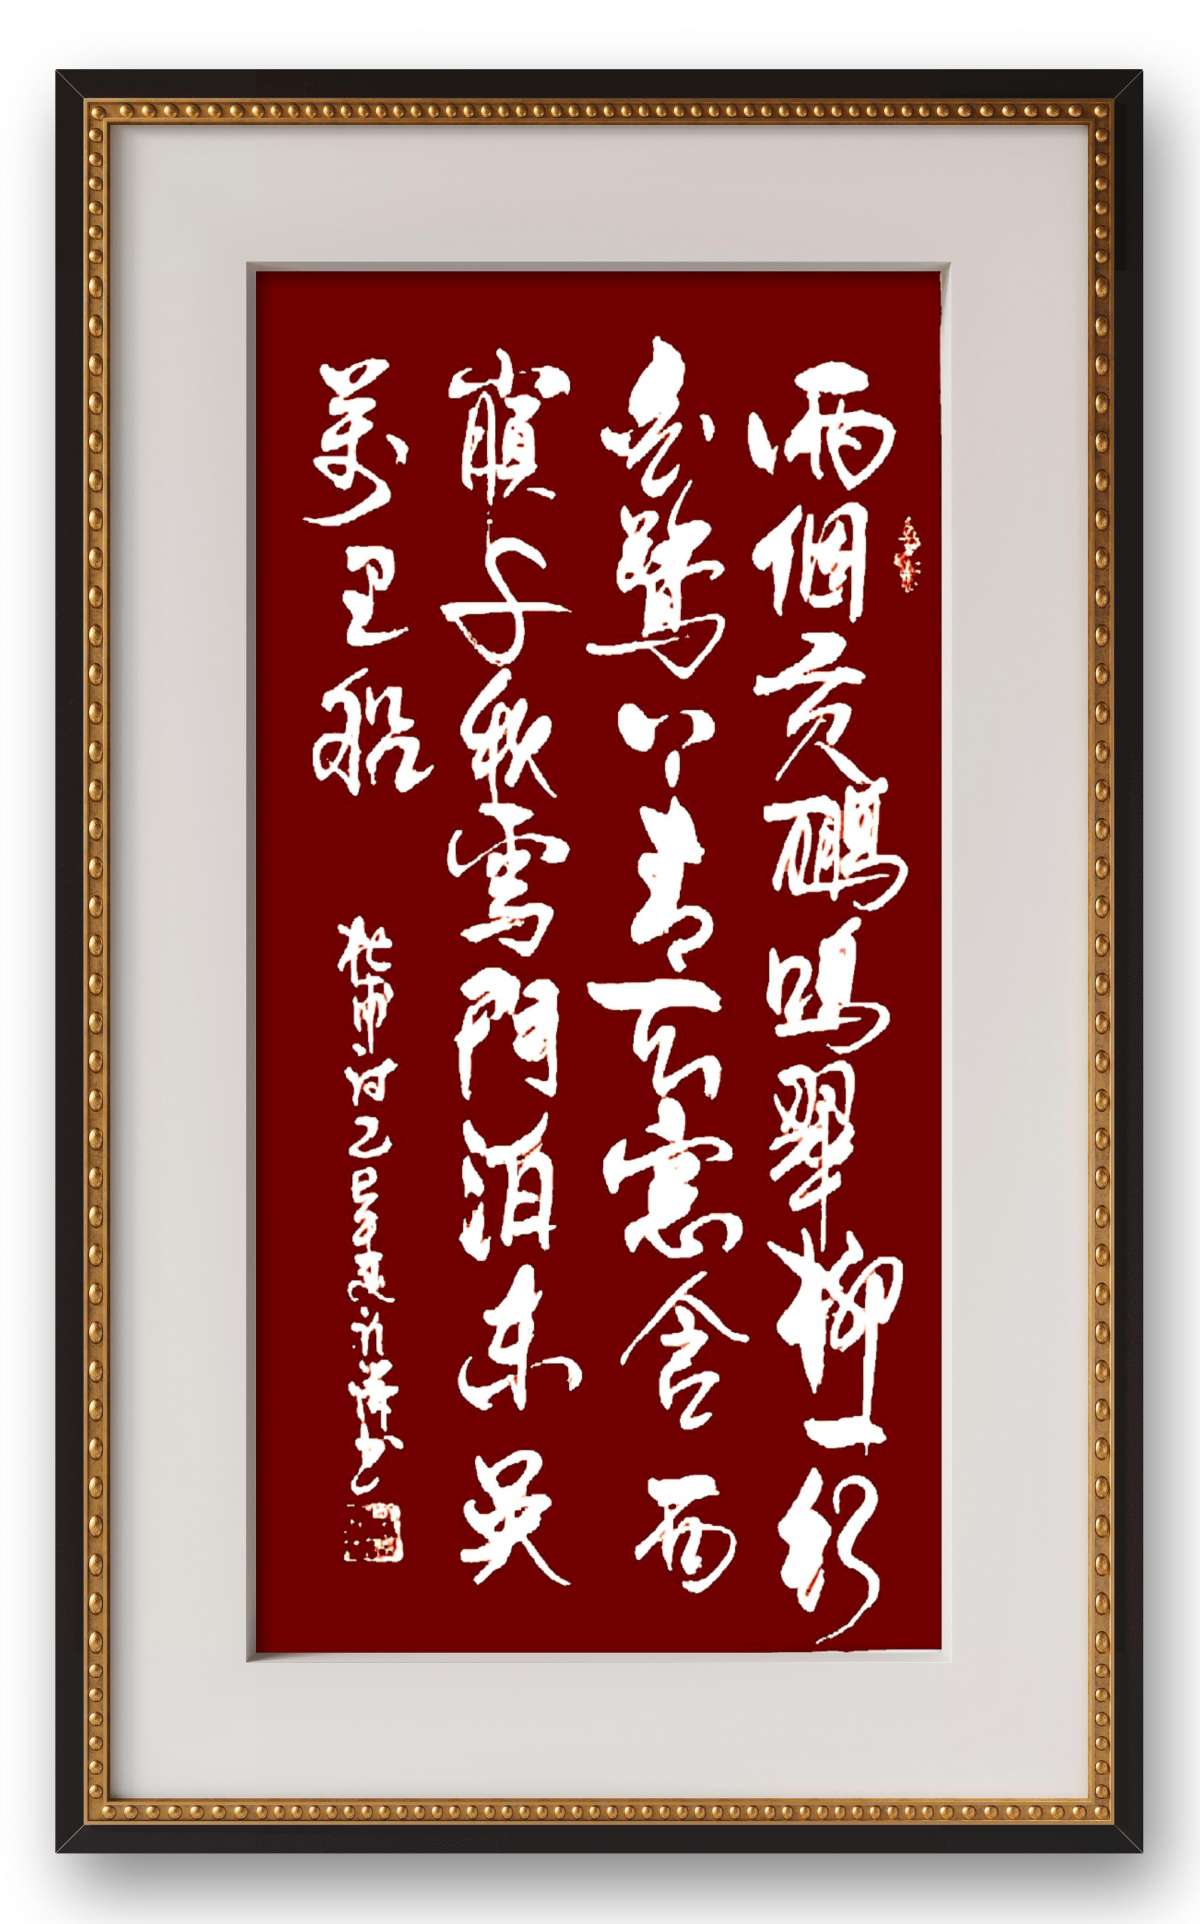 兩個黃鸝鳴翠柳一行
白鷺上青天窓含西
嶺千秋雪門泊東吳
萬里船
杜甫詩乙巳年夏書